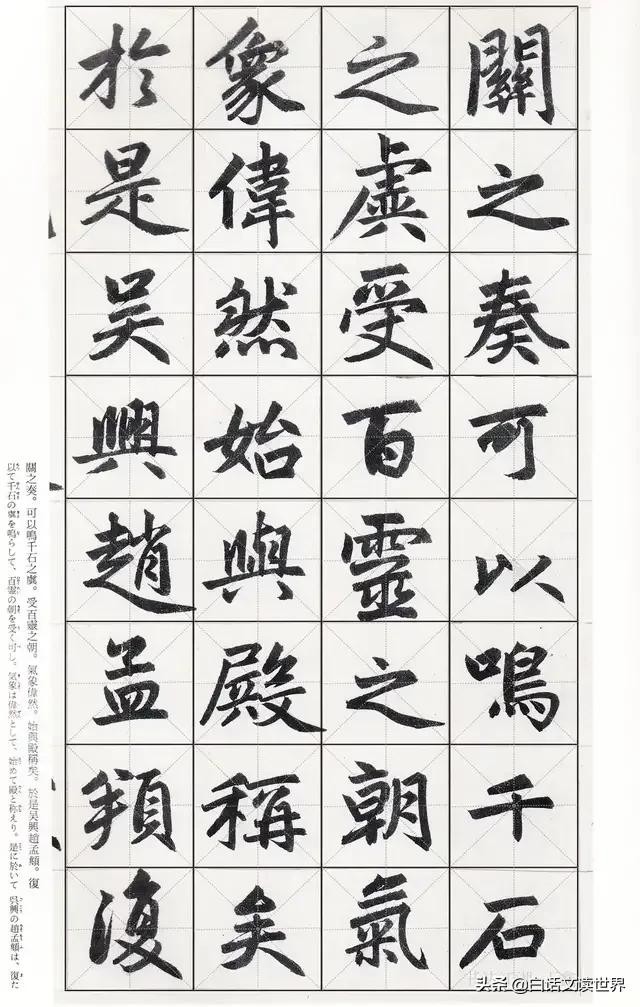 關之奏可以鳴千石
之虡受百靈之朝氣
象偉然始與殿稱矣
於是吴興趙孟頫復
關之奏。可以鳴千石之虡。受百靈之朝。氣象偉然。始與殿稱矣。於是吴興趙孟頫。復
以て千石の虡を鳴らして、百靈の朝を受く可し。氣象は偉然として、始めて殿と称えり。是に於いて 呉興の趙孟頫は、復た
头条 @白话文读世界